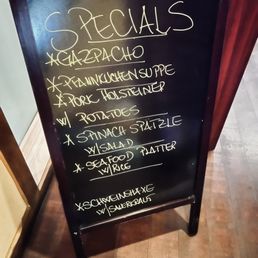 SPECIALS
*GAZPACHO
*PFANNKUCHENSUPPE
*PORK HOLSTEINER
W/ POTATOES
* SPINACH SPATZLE
W/SALAD
*SEAFOOD PLATTER
W/RICE
*SCHWEINSHAXE
W/SAUERKRAUT